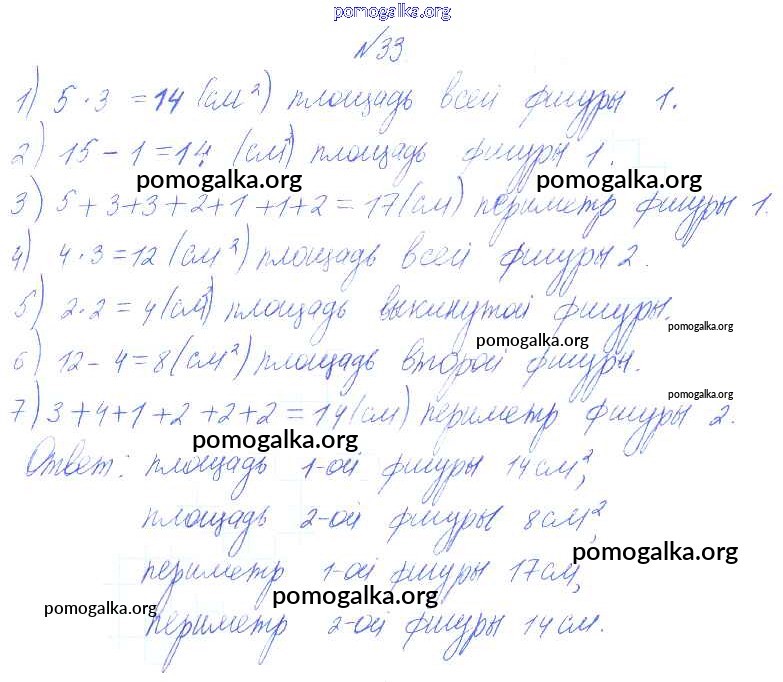 pomogalka.org
№33
1) 5·3 =14 (см²) площадь всей фигуры 1.
2) 15-1=14 (см²) площадь фигуры 1.
pomogalka.org pomogalka.org
3) 5+3+3+2+1+1+2=17(см) периметр фигуры 1.
4) 4·3=12 (см²) площадь всей фигуры 2.
5) 2·2=4(см²) площадь выкинутой фигуры.
pomogalka.org
pomogalka.org
6) 12-4=8(см²) площадь второй фигуры.
pomogalka.org
7) 3+4+1+2+2+2=14(см) периметр фигуры 2.
pomogalka.org
Ответ: площадь 1-ой фигуры 14см²,
площадь 2-ой фигуры 8см²,
pomogalka.org
периметр 1-ой фигуры 17см,
pomogalka.org
pomogalka.org
периметр 2-ой фигуры 14см.